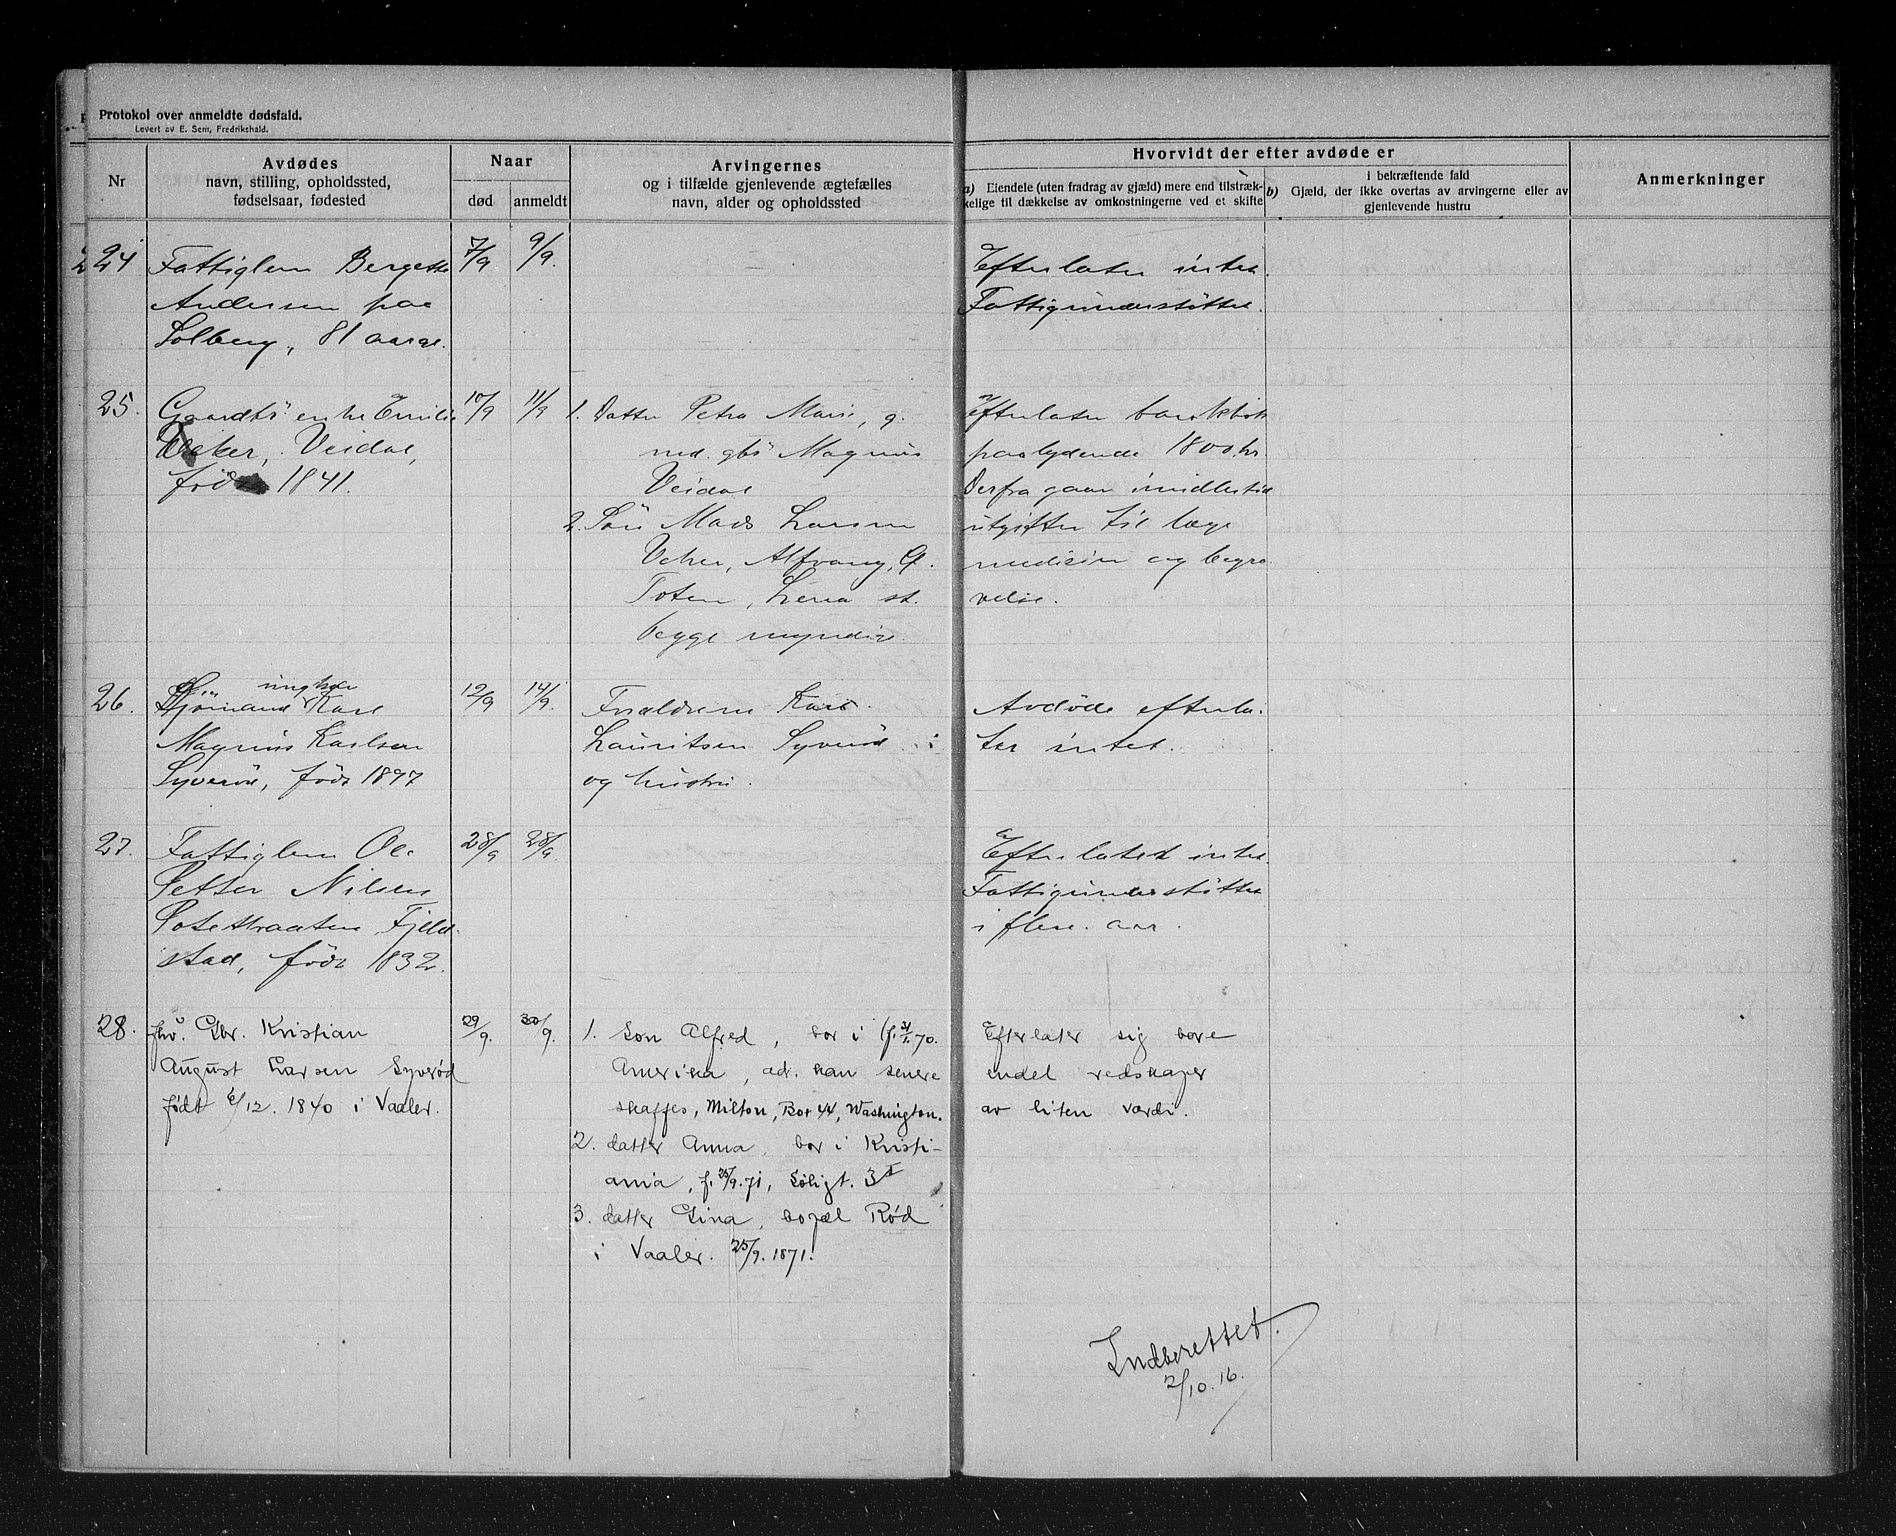 Protokol over anmeldte dødsfald.
Levert av E. Sem, Fredrikshald.
Nr
Avdødes
navn, stilling, opholdssted,
fødselsaar, fødested
Naar
død
anmeldt
Arvingernes
og i tilfælde gjenlevende ægtefælles
navn, alder og opholdssted
Hvorvidt der efter avdøde er
a) Eiendele (uten fradrag av gjæld) mere end tilstræk-
kelige til dækkelse av omkostningerne ved et skifte
i bekræftende fald
b) Gjæld, der ikke overtas av arvingerne eller av
gjenlevende hustru
Anmerkninger
24
Fattiglem Bergette
Andersen paa
Solberg, 81 aar gl.
7/9
9/9.
Efterlater intet.
Fattigunderstøttet.
25.
Gaardbr enke Emilie
Veker, Veidal,
født 1841.
10/9
11/9
1. Datter Petra Marie, g.
med gbr Magnus
Veidal
2. Søn Mads Larsen
Veker, Alfvang, Ø.
Toten, Lena st.
begge myndig.
Efterlater bankbok
paalydende 1800 kr.
Derfra gaar imidlertid
utgifter til læge
medisin og begra-
velse.
26.
ungkar
Sjømand Karl
Magnus Karlsen
Syverød, født 1897
12/9
14/9.
Forældrene Karl
Lauritsen Syverød
og hustru.
Avdøde efterla-
ter intet.
27.
Fattiglem Ole
Petter Nilsen
Fjeld-
stad, født 1832.
28/9
28/9
Efterlated intet
Fattigunderstøttet
i flere aar.
28.
fhv. Gbr. Kristian
August Larsen Syverød
født 6/12. 1840 i Vaaler.
29/9.
30/9.
1. Søn Alfred, bor i (f. 21/1. 70.
Amerika, ad. kan senere
skaffes, Milton, Box 44, Washington.
2. datter Anna, bor i Kristi-
ania, f. 25/9. 71, Søligt. 3 I
3. datter Gina, bopæl Rød
i Vaaler. 25/9. 1871.
Efterlater sig bare
endel redskaper
av liten værdi.
Indberettet.
2/10. 16.